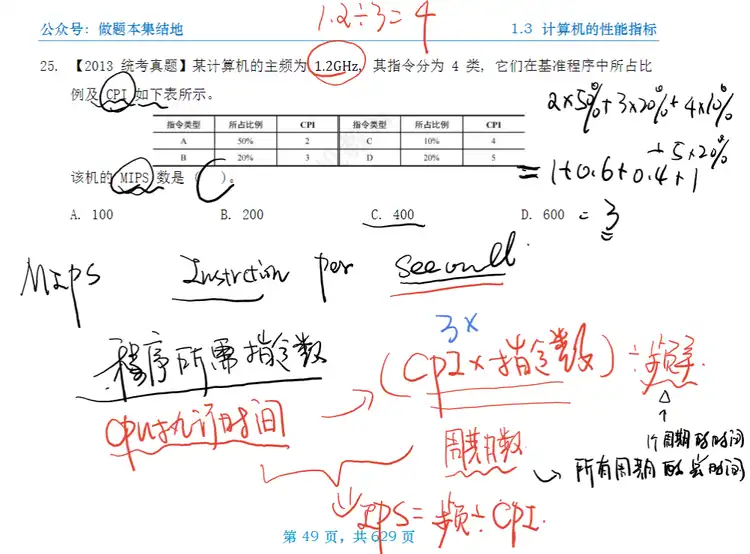 公众号：做题本集结地
1.3 计算机的性能指标
1.2÷3=4
25. 【2013 统考真题】某计算机的主频为 1.2GHz，其指令分为 4 类，它们在基准程序中所占比
例及 CPI 如下表所示。
指令类型 所占比例 CPI 指令类型 所占比例 CPI
A 50% 2 C 10% 4
B 20% 3 D 20% 5
该机的 MIPS 数是（ ）。
A. 100 B. 200 C. 400 D. 600
2×50%+3×20%+4×10%
+5×20%
=1+0.6+0.4+1
=3
MIPS Instrction per second.
程序所需指令数
CPU执行时间
3×
(CPI×指令数)÷频率
1个周期的时间
周期数
所有周期的总时间
IPS=频÷CPI.
第 49 页，共 629 题